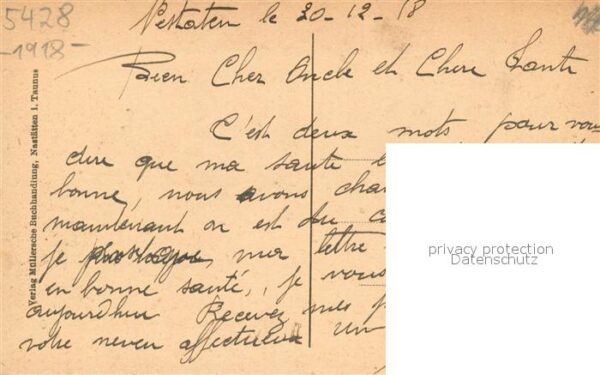 5428
-1918-
Nestaten le 20-12-18
Bien Cher Oncle et Chere Tante
C'est deux mots pour vous
dire que ma sante e
bonne, nous avons chan
maintenant on est du
je mer lettre
en bonne santé, je vous
aujourdhui Recevez mes p
votre neveu affectueux un
Verlag Müllersche Buchhandlung, Nastätten i. Taunus
privacy protection
Datenschutz